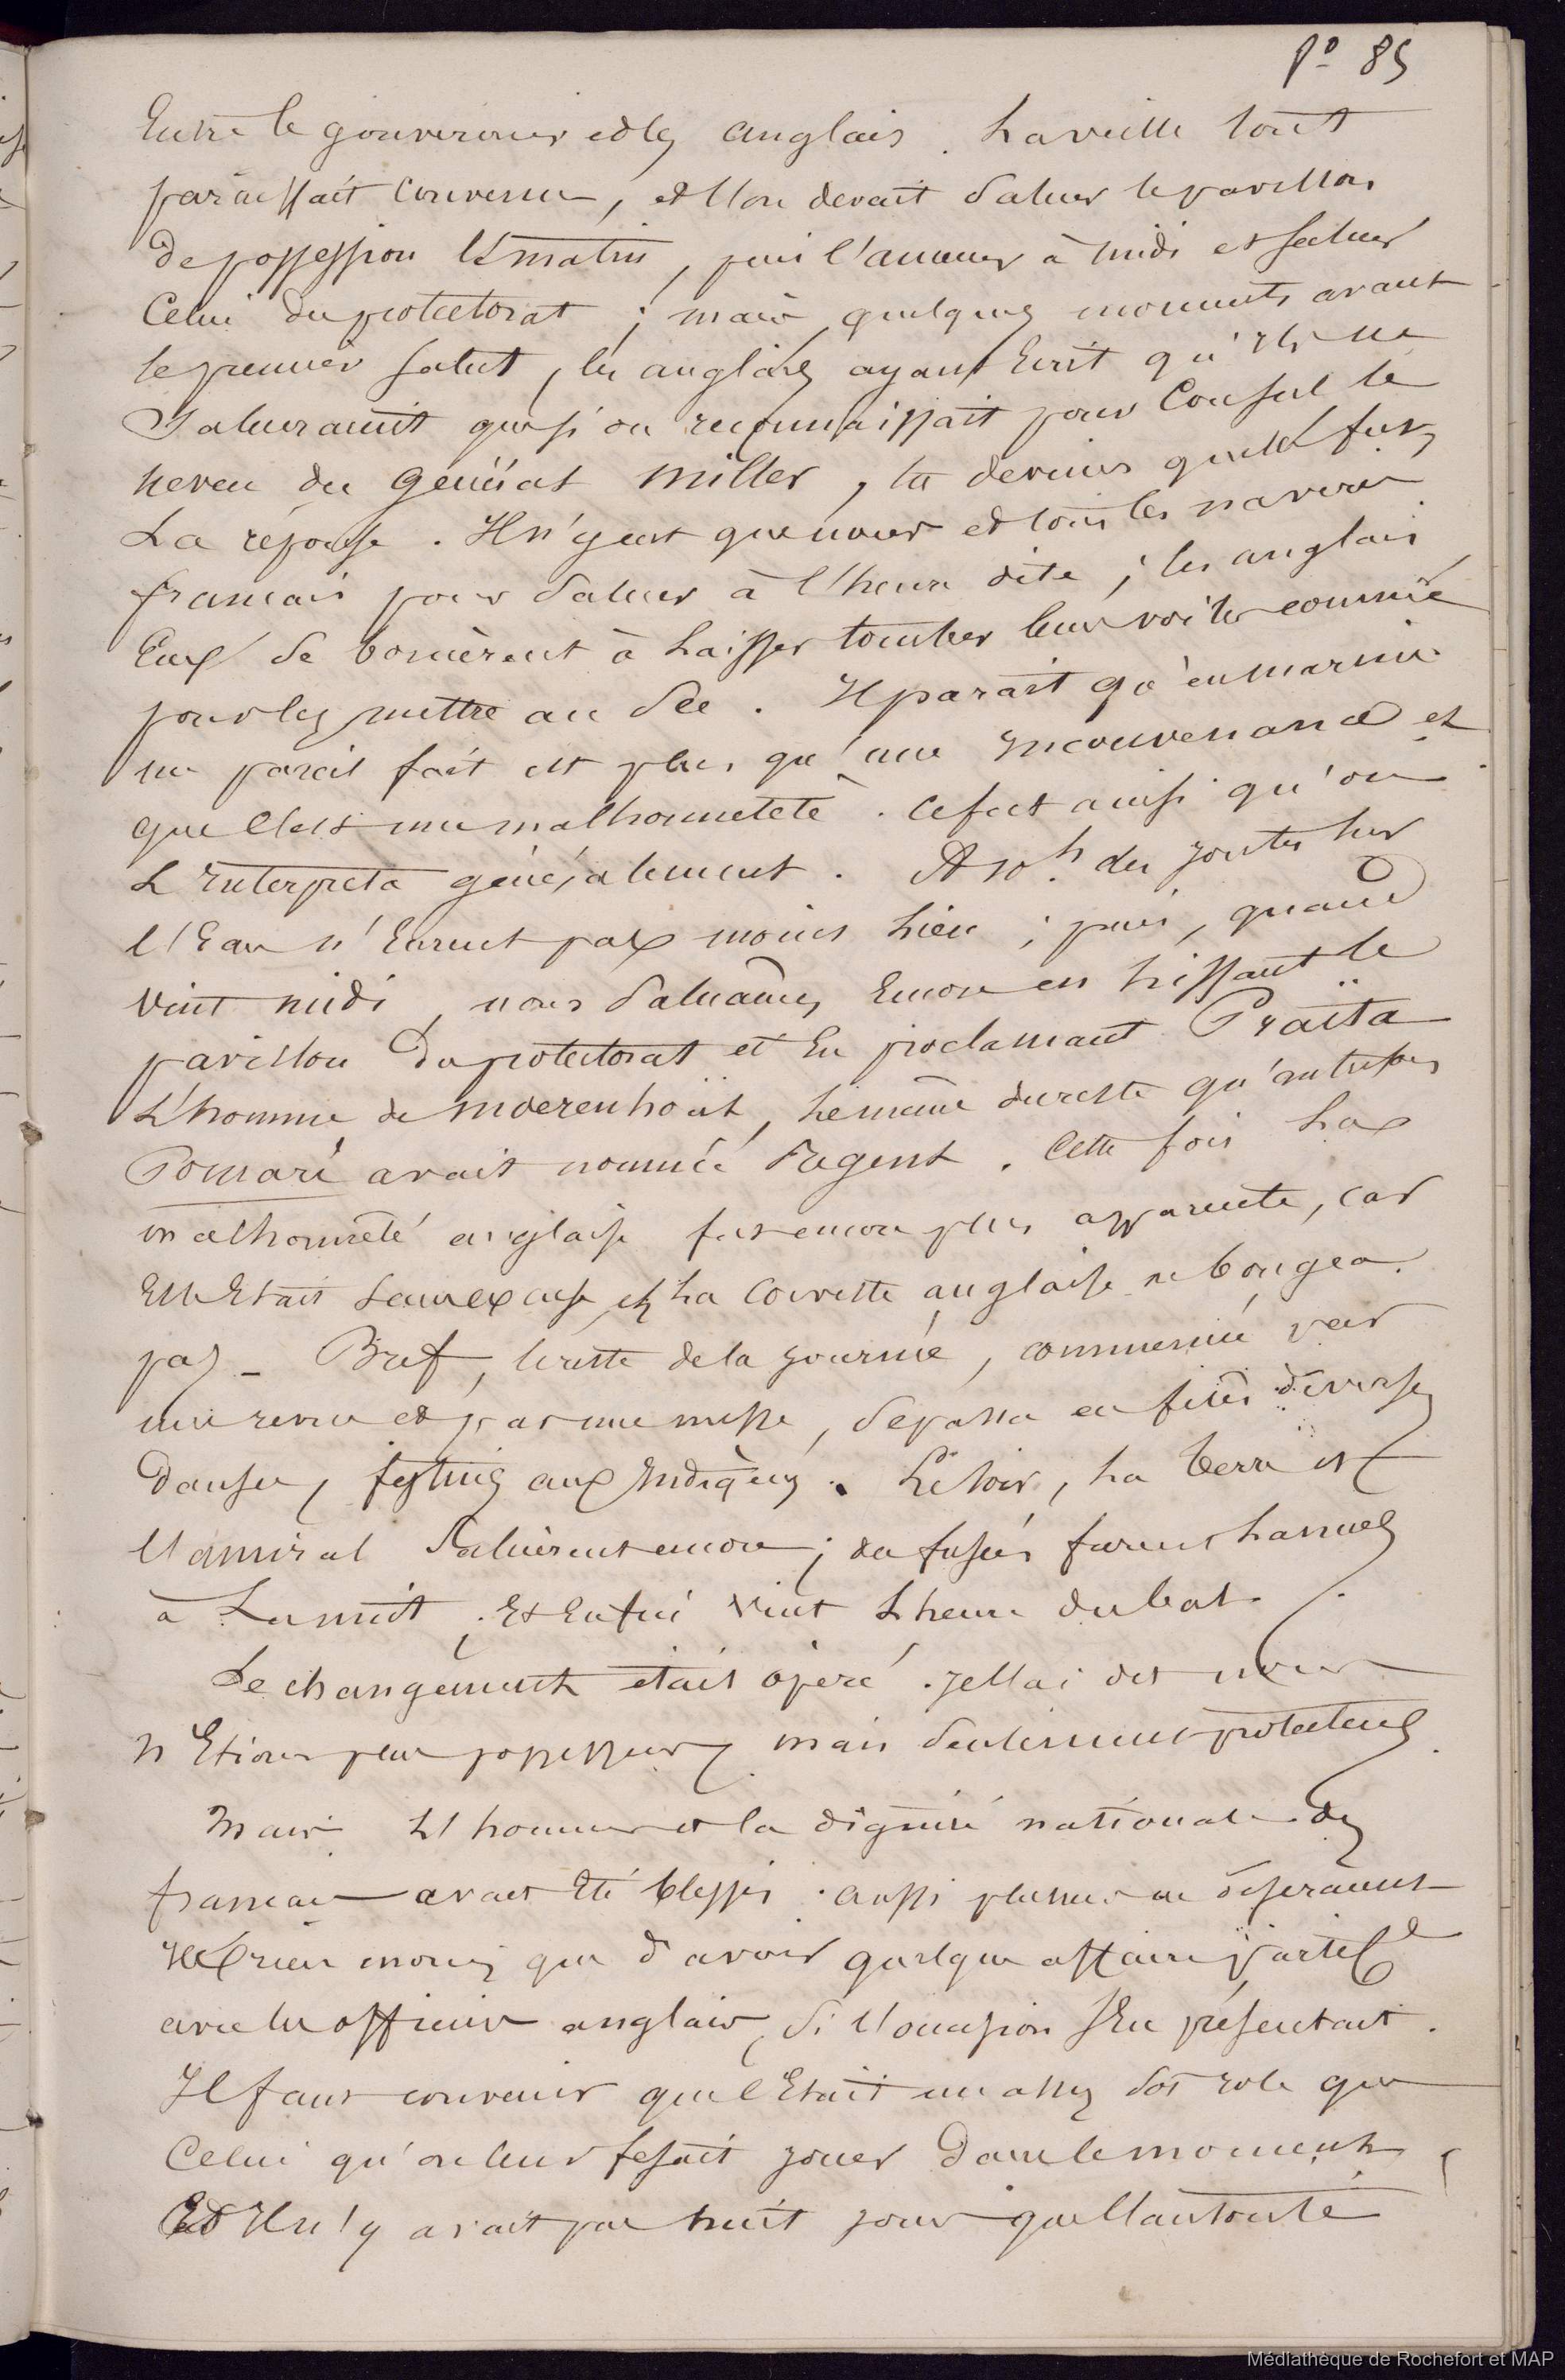 P° 85
Entre le gouverneur et les anglais. La veille tout
paraissait convenu, et l'on devait saluer le pavillon
de possession le matin, puis l'amener à midi et saluer
Celui du protectorat ; mais quelques moments avant
le premier salut, les anglais ayant Ecrit qu'ils ne
Salueraient que si on reconnaissait pour Consul le
neveu du général Miller, tu devines quelle fut
La réponse. Il n'y eut que nous et tous les navires
français pour saluer à l'heure dite ; les anglais
Eux se bornèrent à Laisser tomber leurs voiles comme
pour les mettre au sec. Il parait qu'en marine
un pareil fait est plus qu'une Inconvenance et
que c'est une malhonneteté. Ce fut ainsi qu'on
L'Interpreta généralement. A 10h. des joutes sur
l'Eau n'Eurent pas moins Lieu ; puis, quand
vint midi, nous saluâmes Encore en hissant le
pavillon du protectorat et En proclamant Praïta
L'homme de Moerenhoüt, le même du reste qu'autrefois
Pomaré avait nommée Régent. Cette fois La
malhonnêté anglaise fut encore plus apparente, car
Elle Etait sans excuse, et La Corvette anglaise ne bougea
pas - Bref, le reste de la journée, commencée par
une revue et par une messe, se passa en fêtes diverses
danses, festins aux Indigènes. Le soir, La terre et
l'amiral Saluèrent encore ; des fusées furent Lancées
à La nuit. Et Enfin vint L'heure du bal.
Le changement était opéré. Je l'ai dit nous
n'Etions plus possesseurs mais seulement protecteurs.
Mais L'honneur et la dignité nationale des
français avait Eté blessés. aussi plusieurs ne désiraient
Ils rien moins que d'avoir quelque affaire partiele
avec les officiers anglais, si l'occasion s'En présentait.
Il faut convenir que c'Etait un assez sot role que
Celui qu'on leur fesait jouer dans le moment,
Et Il n'y avait pas huit jours que l'autorité
Médiathèque de Rochefort et MAP